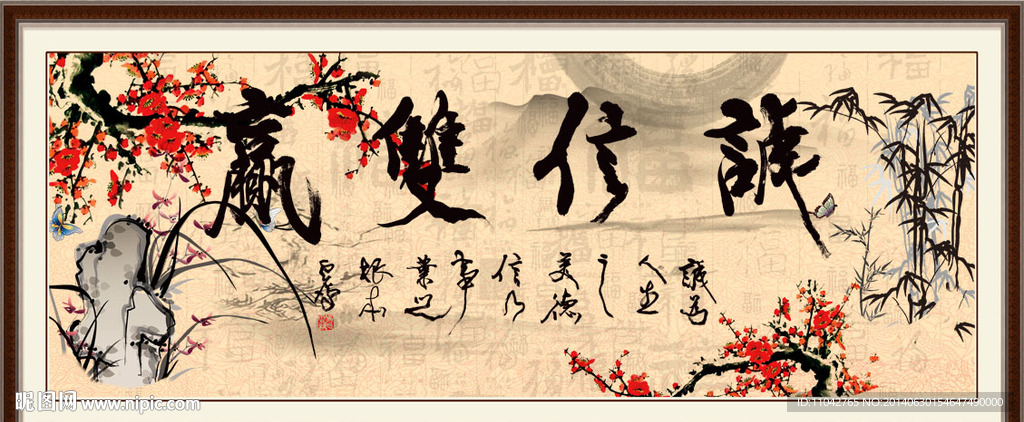 誠信雙贏
誠為
人生
之
美德
信乃
事
業之
根本
昵图网 www.nipic.com
ID:11042765 NO:20140630154647490000